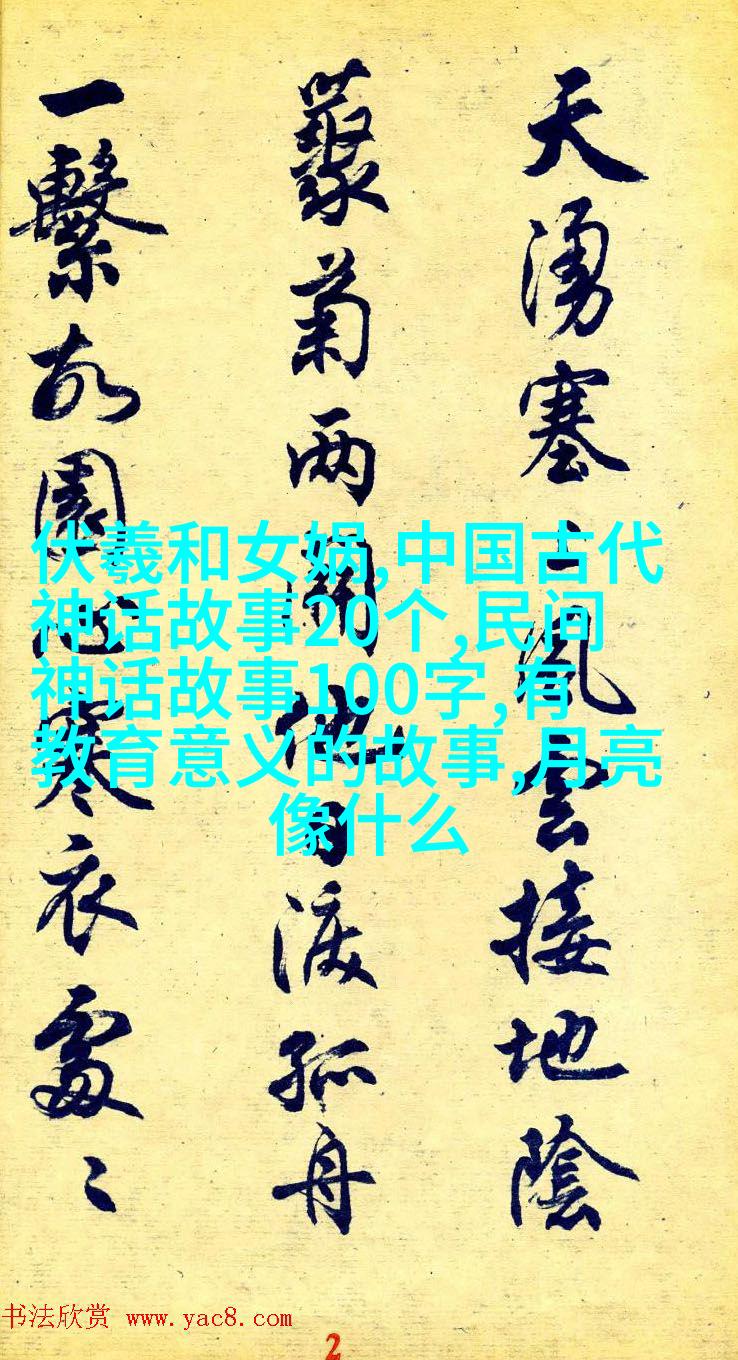 天湧塞上風雲接地陰
藂菊两開他日淚孤舟
一繫故園心寒衣處〻
伏羲和女娲,中国古代
神话故事20个,民间
神话故事100字,有
教育意义的故事,月亮
像什么
书法欣赏 www.yac8.com
2